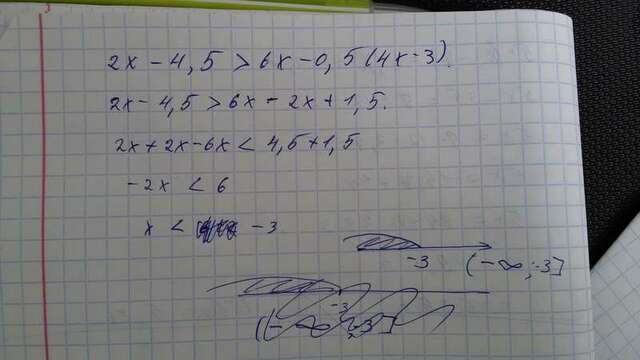 2x - 4,5 > 6x - 0,5(4x - 3).
2x - 4,5 > 6x - 2x + 1,5.
2x + 2x - 6x < 4,5 + 1,5
-2x < 6
x < -3
-3
(-∞; -3]
-3
(-∞; -3]